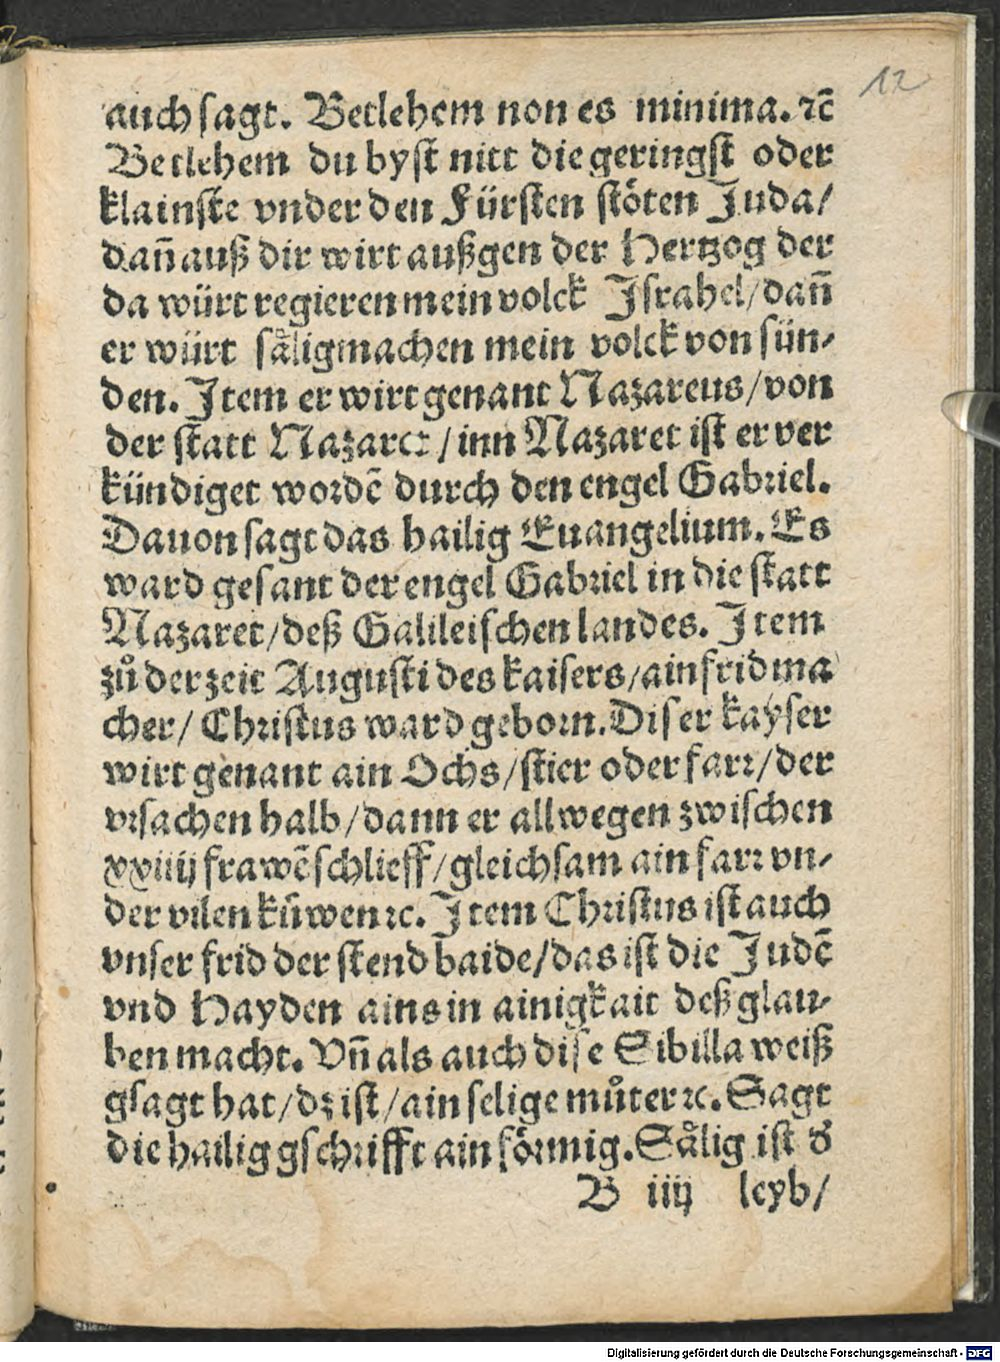 12
auch sagt. Betlehem non es minima. ꝛc̄
Betlehem du byst nitt die geringst oder
klainste vnder den Fürsten stöten Juda/
dañ auß dir wirt außgen der Hertzog der
da würt regieren mein volck Israhel/dañ
er würt såligmachen mein volck von sün-
den. Item er wirt genant Nazareus/von
der statt Nazaret/inn Nazaret ist er ver
kündiget wordē durch den engel Gabriel.
Dauon sagt das hailig Euangelium. Es
ward gesant der engel Gabriel in die statt
Nazaret/deß Galileischen landes. Item
zů der zeit Augusti des kaisers/ain fridma
cher/ Christus ward geborn. Diser kayser
wirt genant ain Ochs/stier oder farr/der
vrsachen halb/dann er allwegen zwischen
xxiiij frawē schlieff/gleichsam ain farr vn-
der vilen kůwen ꝛc. Item Christus ist auch
vnser frid der stend baide/das ist die Judē
vnd Hayden ains in ainigkait deß glau-
ben macht. Vñ als auch dise Sibilla weiß
gsagt hat/dz ist/ain selige můter ꝛc. Sagt
die hailig gschrifft ain förmig. Sålig ist d̕
B iiij leyb/
Digitalisierung gefördert durch die Deutsche Forschungsgemeinschaft - DFG